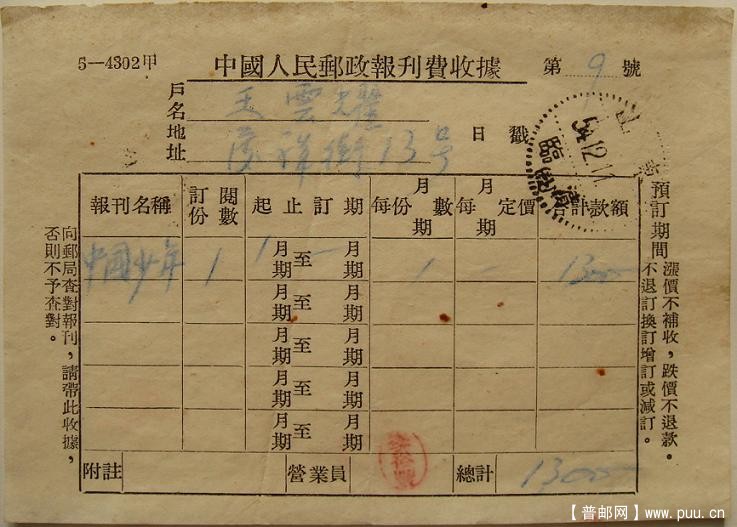 5—4302甲
中國人民郵政報刊費收據
第 9 號
戶名 王雲
地址 祥街13号
日戳
54.12.11
臨
報刊名稱 訂閱份數 起止訂期 每份月期數 每月期定價 合計款額
中國少年 1 1月期至一月期 1 一 1300
月期至 月期
月期至 月期
月期至 月期
月期至 月期
附註 營業員 總計 1300
預訂期間漲價不補收，跌價不退款。
不退訂換訂增訂或減訂。
向郵局查對報刊，請帶此收據，
否則不予查對。
【普邮网】www.puu.cn